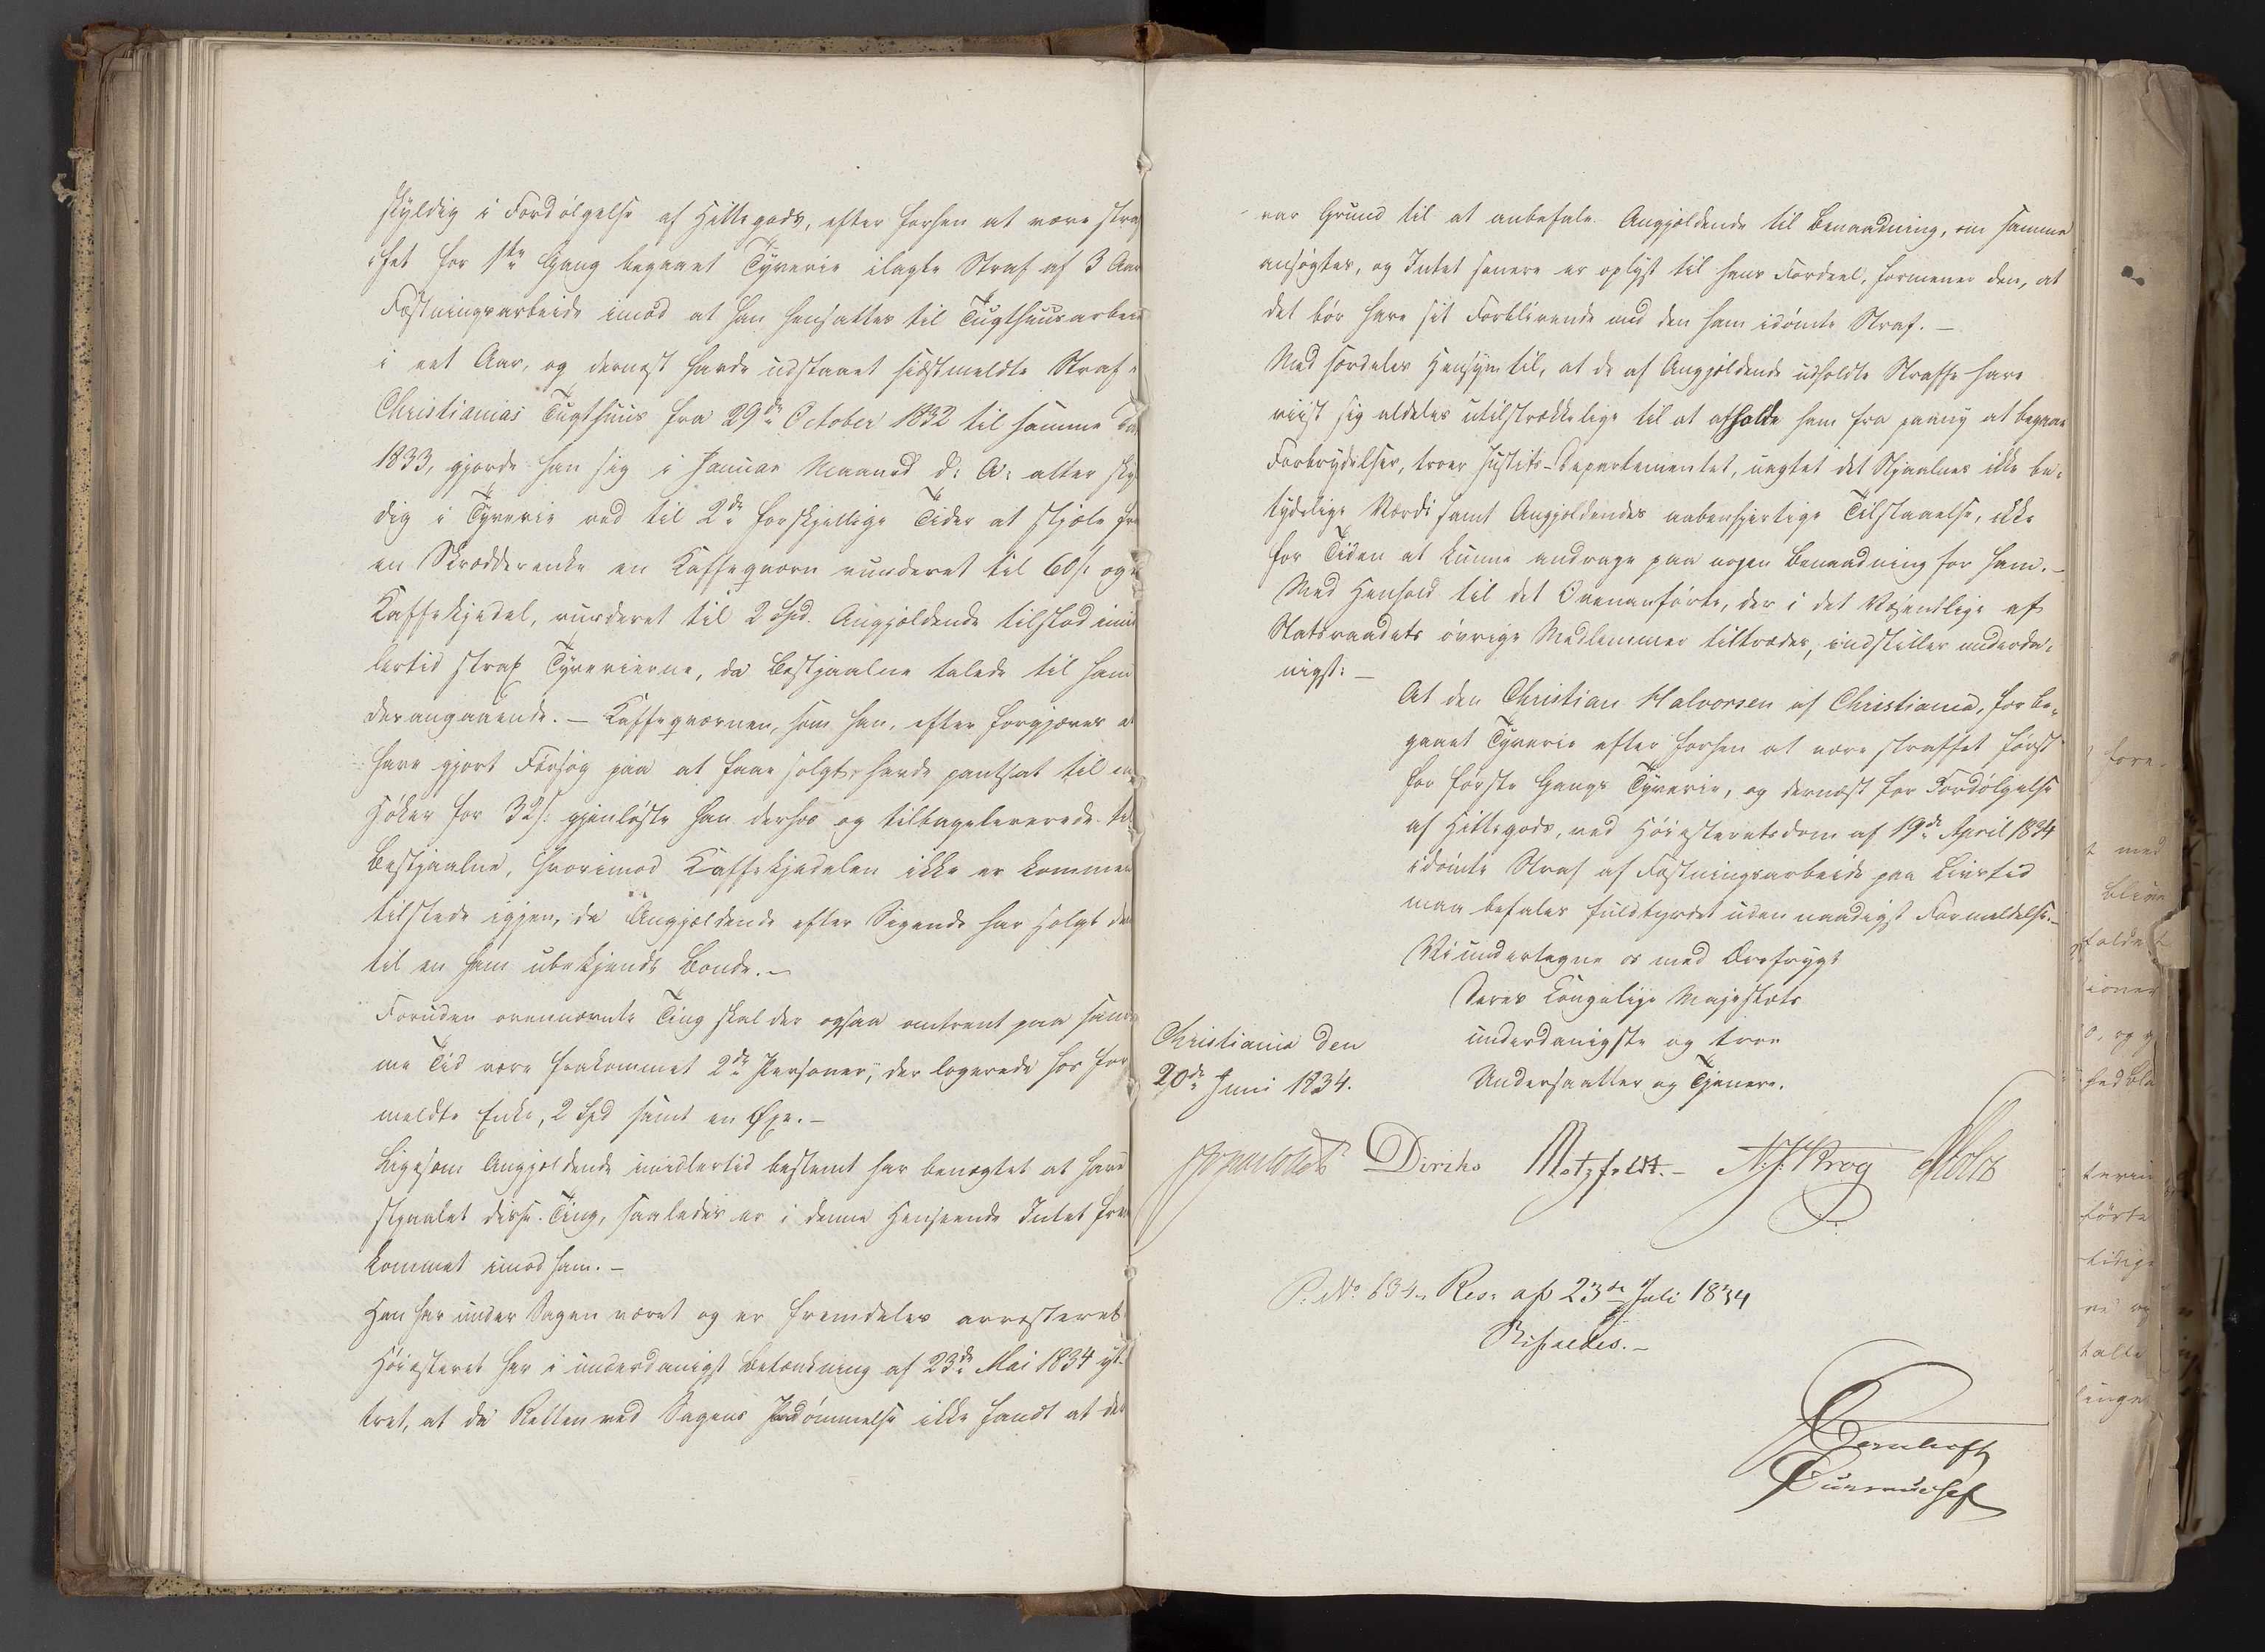 skyldig i Fordølgelse af Hittegods, efter forhen at være straf-
fet for 1ste Gang begaaet Tyverie ilagte Straf af 3 Aars
Fæstningsarbeide imod at han hensattes til Tugthuusarbeide
i eet Aar, og dernæst havde udstaaet sidstmeldte Straf i
Christianias Tugthuus fra 29de October 1832 til samme Dato
1833, gjorde han sig i Januar Maaned d: A: atter skyl-
dig i Tyverie ved til 2de forskjellige Tider at stjæle fra
en Skrædderenke en Kaffeqværn vurderet til 60 s: og en
Kaffekjedel, vurderet til 2 Spd. Angjældende tilstod imid-
lertid strax Tyverierne, da Bestjaalne talede til ham
derangaaende. – Kaffeqværnen, som han, efter forgjæves at
have gjort Forsøg paa at faae solgt, havde pantsat til en
Høker for 32 s: gjenløste han derhos og tilbageleverede til
Bestjaalne, hvorimod Kaffekjedelen ikke er kommen
tilstede igjen, da Angjældende efter Sigende har solgt den
til en ham ubekjendt Bonde. –
Foruden ovennævnte Ting skal der ogsaa omtrent paa sam-
me Tid være frakommet 2de Personer, der logerede hos for-
meldte Enke, 2 Spd samt en Øxe. –
Ligesom Angjældende imidlertid bestemt har benægtet at have
stjaalet disse Ting, saaledes er i denne Henseende Intet frem-
kommet imod ham. –
Han har under Sagen været og er fremdeles arresteret.
Høiesteret har i underdanigst Betænkning af 23de Mai 1834 yt-
tret, at da Retten ved Sagens Paadømmelse ikke fandt at der
var Grund til at anbefale Angjældende til Benaadning, om samme
ansøgtes, og Intet senere er oplyst til hans Fordeel, formener den, at
det bør have sit Forblivende med den ham idømte Straf. –
Med særdeles Hensyn til, at de af Angjældende udholdte Straffe have
viist sig aldeles utilstrækkelige til at afholde ham fra paany at begaae
Forbrydelser, troer Justits-Departementet, uagtet det Stjaalnes ikke be-
tydelige Værdi samt Angjældendes aabenhjertige Tilstaaelse, ikke
for Tiden at kunne andrage paa nogen Benaadning for ham. –
Med Henhold til det Ovenanførte, der i det Væsentlige af
Statsraadets øvrige Medlemmer tiltrædes, indstilles underda-
nigst: –
At den Christian Halvorsen af Christiania, for be-
gaaet Tyverie efter forhen at være straffet først
for første Gangs Tyverie, og dernæst for Fordølgelse
af Hittegods, ved Høiesteretsdom af 19de April 1834
idømte Straf af Fæstningsarbeide paa Livstid
maa befales fuldbyrdet uden naadigst Formildelse. –
Vi undertegne os med Ærefrygt
Deres Kongelige Majestæts
underdanigste og troe
Undersaatter og Tjenere.
Christiania den
20de Juni 1834.
Diriks Motzfeldt. – N. J. Krog Holst
P: No 634, Res: af 23de Juli 1834
Bifaldes. –
fore-
t med
blive
ført
tidige